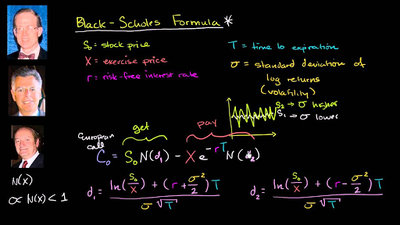 Black-Scholes Formula *
S₀ = stock price
X = exercise price
r = risk-free interest rate
T = time to expiration
σ = standard deviation of
log returns
(volatility)
S₂ → σ higher
S₁ → σ lower
European
call
get
pay
C₀ = S₀N(d₁) - X e^(-rT) N(d₂)
N(x)
0 < N(x) < 1
d₁ = (ln(S₀/X) + (r + σ²/2)T) / (σ√T)
d₂ = (ln(S₀/X) + (r - σ²/2)T) / (σ√T)